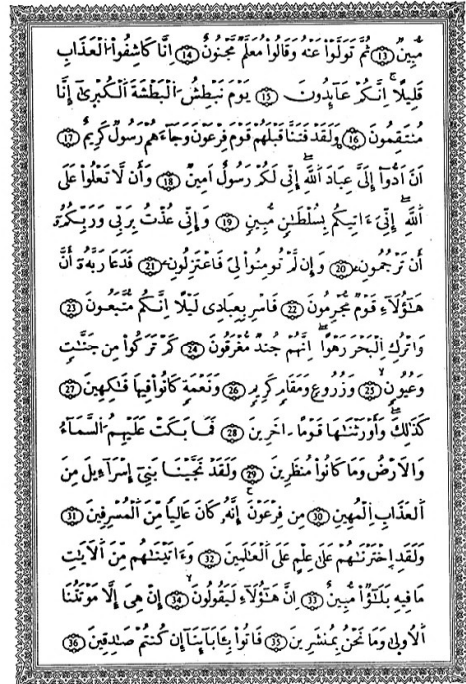 مُّبِينٌ ⑬ ثُمَّ تَوَلَّوْا۟ عَنْهُ وَقَالُوا۟ مُعَلَّمٌ مَّجْنُونٌ ⑭ اِنَّا كَاشِفُوا۟ اُلْعَذَابِ
قَلِيلًا اِنَّكُمْ عَآئِدُونَ ⑮ يَوْمَ نَبْطِشُ اُلْبَطْشَةَ اَلْكُبْرَىٰٓ إِنَّا
مُنتَقِمُونَ ⑯ وَلَقَدْ فَتَنَّا قَبْلَهُمْ قَوْمَ فِرْعَوْنَ وَجَآءَهُمْ رَسُولٌ كَرِيمٌ ⑰
اَنَ اَدُّوٓا۟ إِلَىَّ عِبَادَ اَللَّهِ إِنِّى لَكُمْ رَسُولٌ اَمِينٌ ⑱ وَأَن لَّا تَعْلُوا۟ عَلَى
اَللَّهِ إِنِّىٓ ءَاتِيكُم بِسُلْطَٰنٍ مُّبِينٍ ⑲ وَإِنِّى عُذْتُ بِرَبِّى وَرَبِّكُمُۥٓ
أَن تَرْجُمُونِ ⑳ وَإِن لَّمْ تُومِنُوا۟ لِى فَاعْتَزِلُونِ ㉑ فَدَعَا رَبَّهُۥٓ أَنَّ
هَٰٓؤُلَآءِ قَوْمٌ مُّجْرِمُونَ ㉒ فَاسْرِ بِعِبَادِى لَيْلًا اِنَّكُم مُّتَّبَعُونَ ㉓
وَاتْرُكِ اِلْبَحْرَ رَهْوًا اِنَّهُمْ جُندٌ مُّغْرَقُونَ ㉔ كَمْ تَرَكُوا۟ مِن جَنَّٰتٍ
وَعُيُونٍ ㉕ وَزُرُوعٍ وَمَقَامٍ كَرِيمٍ ㉖ وَنَعْمَةٍ كَانُوا۟ فِيهَا فَٰكِهِينَ ㉗
كَذَٰلِكَ وَأَوْرَثْنَٰهَا قَوْمًا اٰخَرِينَ ㉘ فَمَا بَكَتْ عَلَيْهِمُ اُلسَّمَآءُ
وَالَارْضُ وَمَا كَانُوا۟ مُنظَرِينَ ㉙ وَلَقَدْ نَجَّيْنَا بَنِىٓ إِسْرَآءِيلَ مِنَ
اَلْعَذَابِ اِلْمُهِينِ ㉚ مِن فِرْعَوْنَ إِنَّهُۥ كَانَ عَالِيًا مِّنَ اَلْمُسْرِفِينَ ㉛
وَلَقَدِ اِخْتَرْنَٰهُمْ عَلَىٰ عِلْمٍ عَلَى اَلْعَٰلَمِينَ ㉜ وَءَاتَيْنَٰهُم مِّنَ اَلَايَٰتِ
مَا فِيهِ بَلَٰٓؤٌا۟ مُّبِينٌ ㉝ اِنَّ هَٰٓؤُلَآءِ لَيَقُولُونَ ㉞ إِنْ هِىَ إِلَّا مَوْتَتُنَا
اَلُاولَىٰ وَمَا نَحْنُ بِمُنشَرِينَ ㉟ فَاتُوا۟ بِـَٔابَآئِنَآ إِن كُنتُمْ صَٰدِقِينَ ㊱